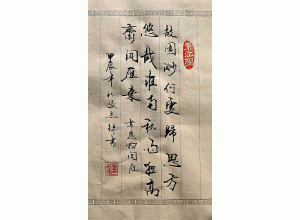 故园渺何处归思方
悠哉淮南秋雨夜高
斋闻雁来 韦应物闻雁
甲辰年秋